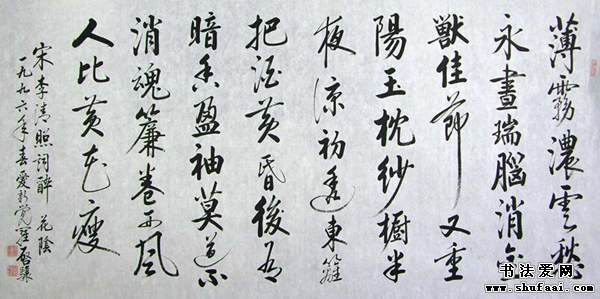 薄霧濃雲愁
永晝瑞腦消金
獸佳節又重
陽玉枕紗櫥半
夜涼初透東籬
把酒黃昏後有
暗香盈袖莫道不
消魂簾卷西風
人比黃花瘦
宋李清照詞醉花陰
一九九六年愛新覺羅啟驤
书法爱网
www.shufaai.com